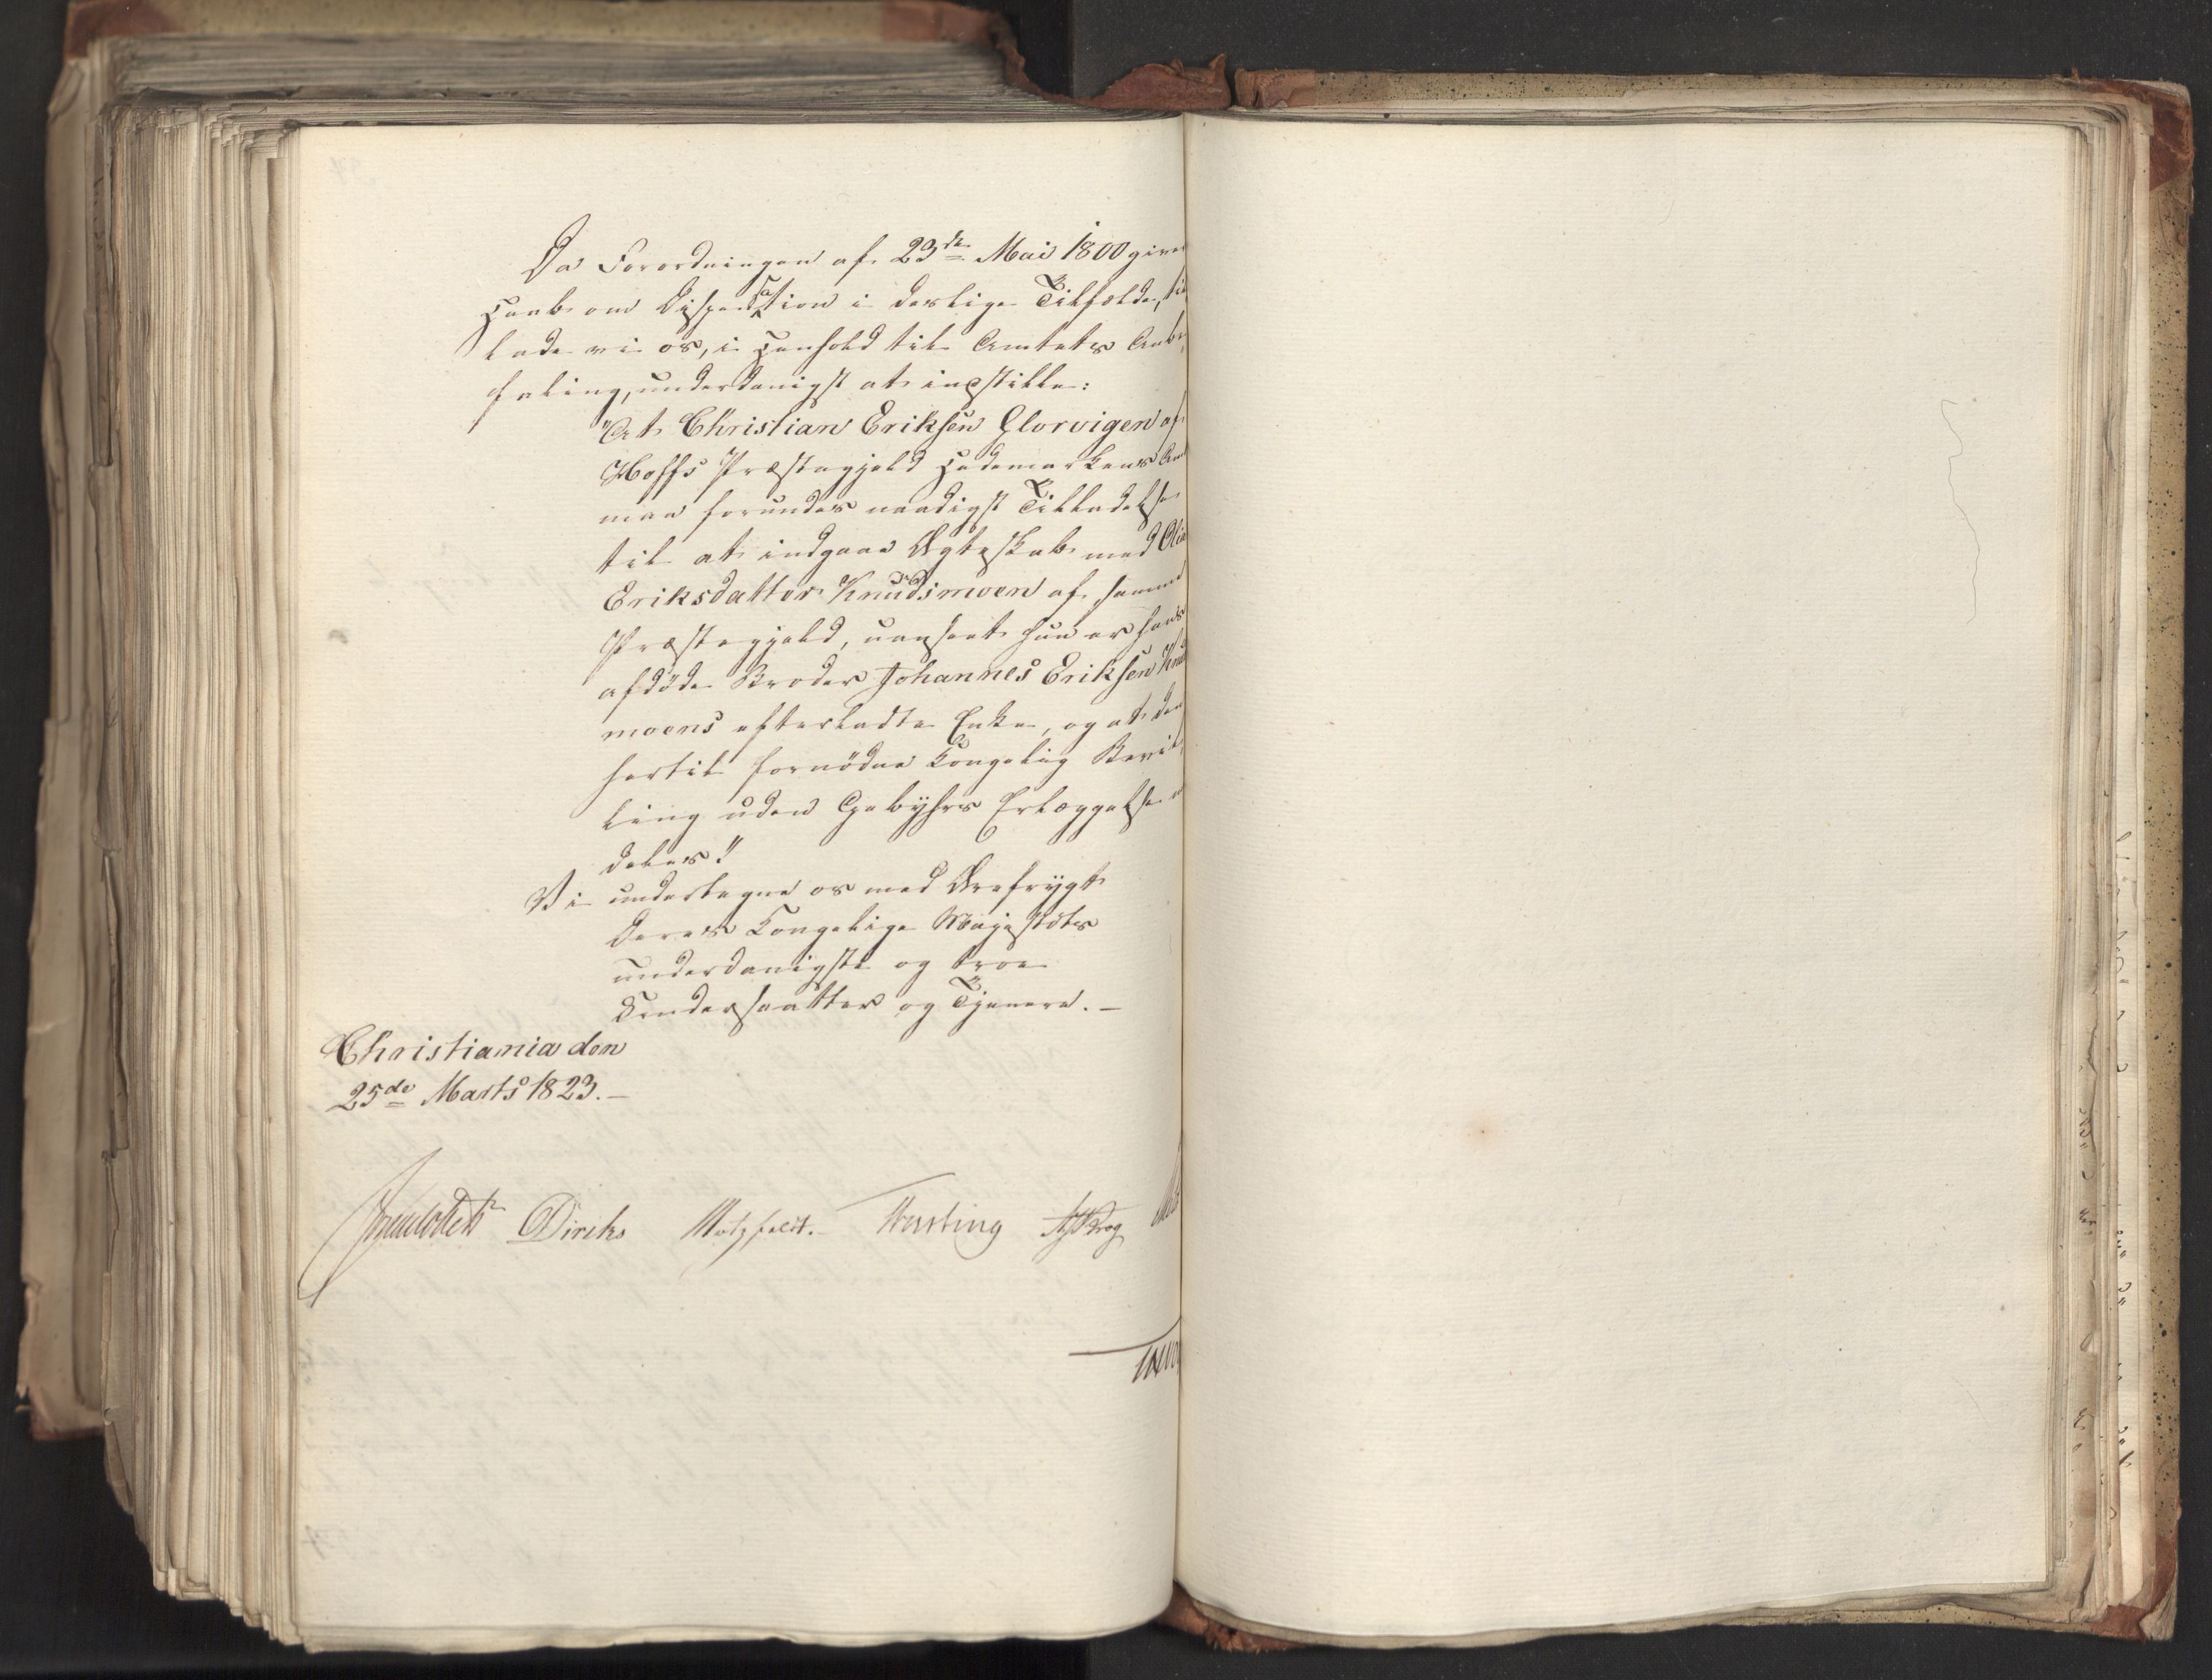 Da Forordningen af 23de Mai 1800 giver
Haab om Dispensation i deslige Tilfælde, til
lade vi os, i Henhold til Amtets Anbe
faling, underdanigst at indstille:
"At Christian Eriksen Glorvigen af
Hoffs Præstegjeld Hedemarkens Amt
maa forundes naadigst Tilladelse
til at indgaae Ægteskab med Olia
Eriksdatter Knudsmoen af samme
Præstegjeld, uanseet hun er hans
afdöde Broder Johannes Eriksen Knuds
moens efterladte Enke, og at den
hertil fornödne Kongelig Bevil
ling uden Gebyhrs Erlæggelse
deles."
Vi undertegne os med Ærefrygt
Deres Kongelige Majestæts
underdanigste og troe
Undersaatter og Tjenere. -
Christiania den
25de Marts 1823. -
Diriks Motzfeldt. Krog